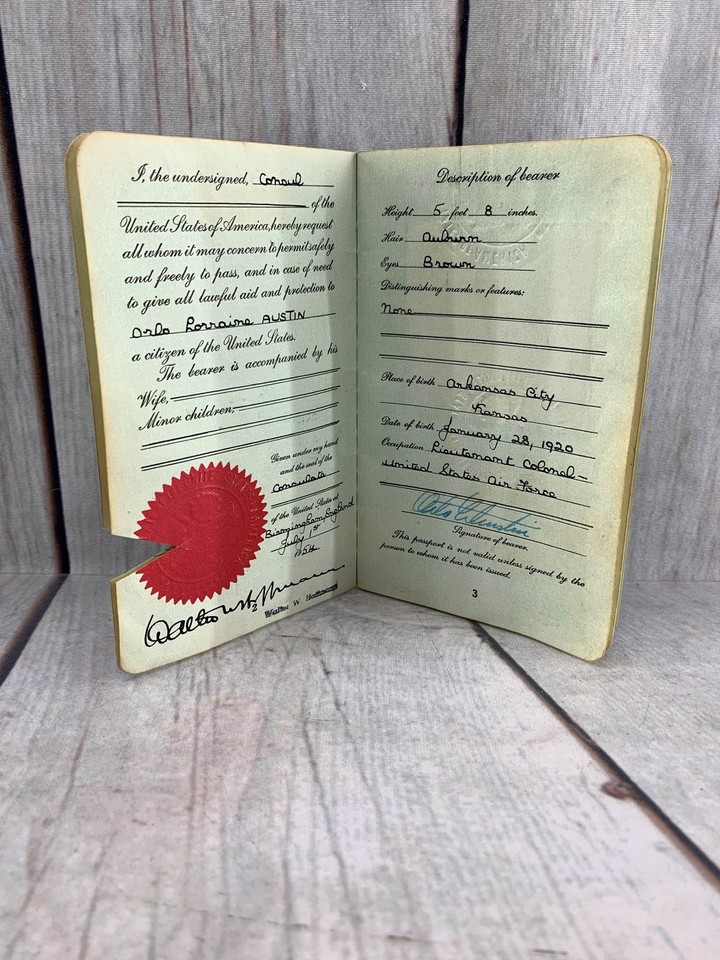 I, the undersigned, Consul
of the
United States of America, hereby request
all whom it may concern to permit safely
and freely to pass, and in case of need
to give all lawful aid and protection to
Orlo Lorraine AUSTIN
a citizen of the United States.
The bearer is accompanied by his
Wife,
Minor children,
Given under my hand
and the seal of the
Consulate
of the United States at
Birmingham, England
July 1st
1954
Walter W. Hoffmann
2
Walter W. Hoffmann
Description of bearer
Height 5 feet 8 inches.
Hair Auburn
Eyes Brown
Distinguishing marks or features:
None
Place of birth Arkansas City
Kansas
Date of birth January 28, 1920
Occupation Lieutenant Colonel-
United States Air Force
Signature of bearer.
This passport is not valid unless signed by the
person to whom it has been issued.
3